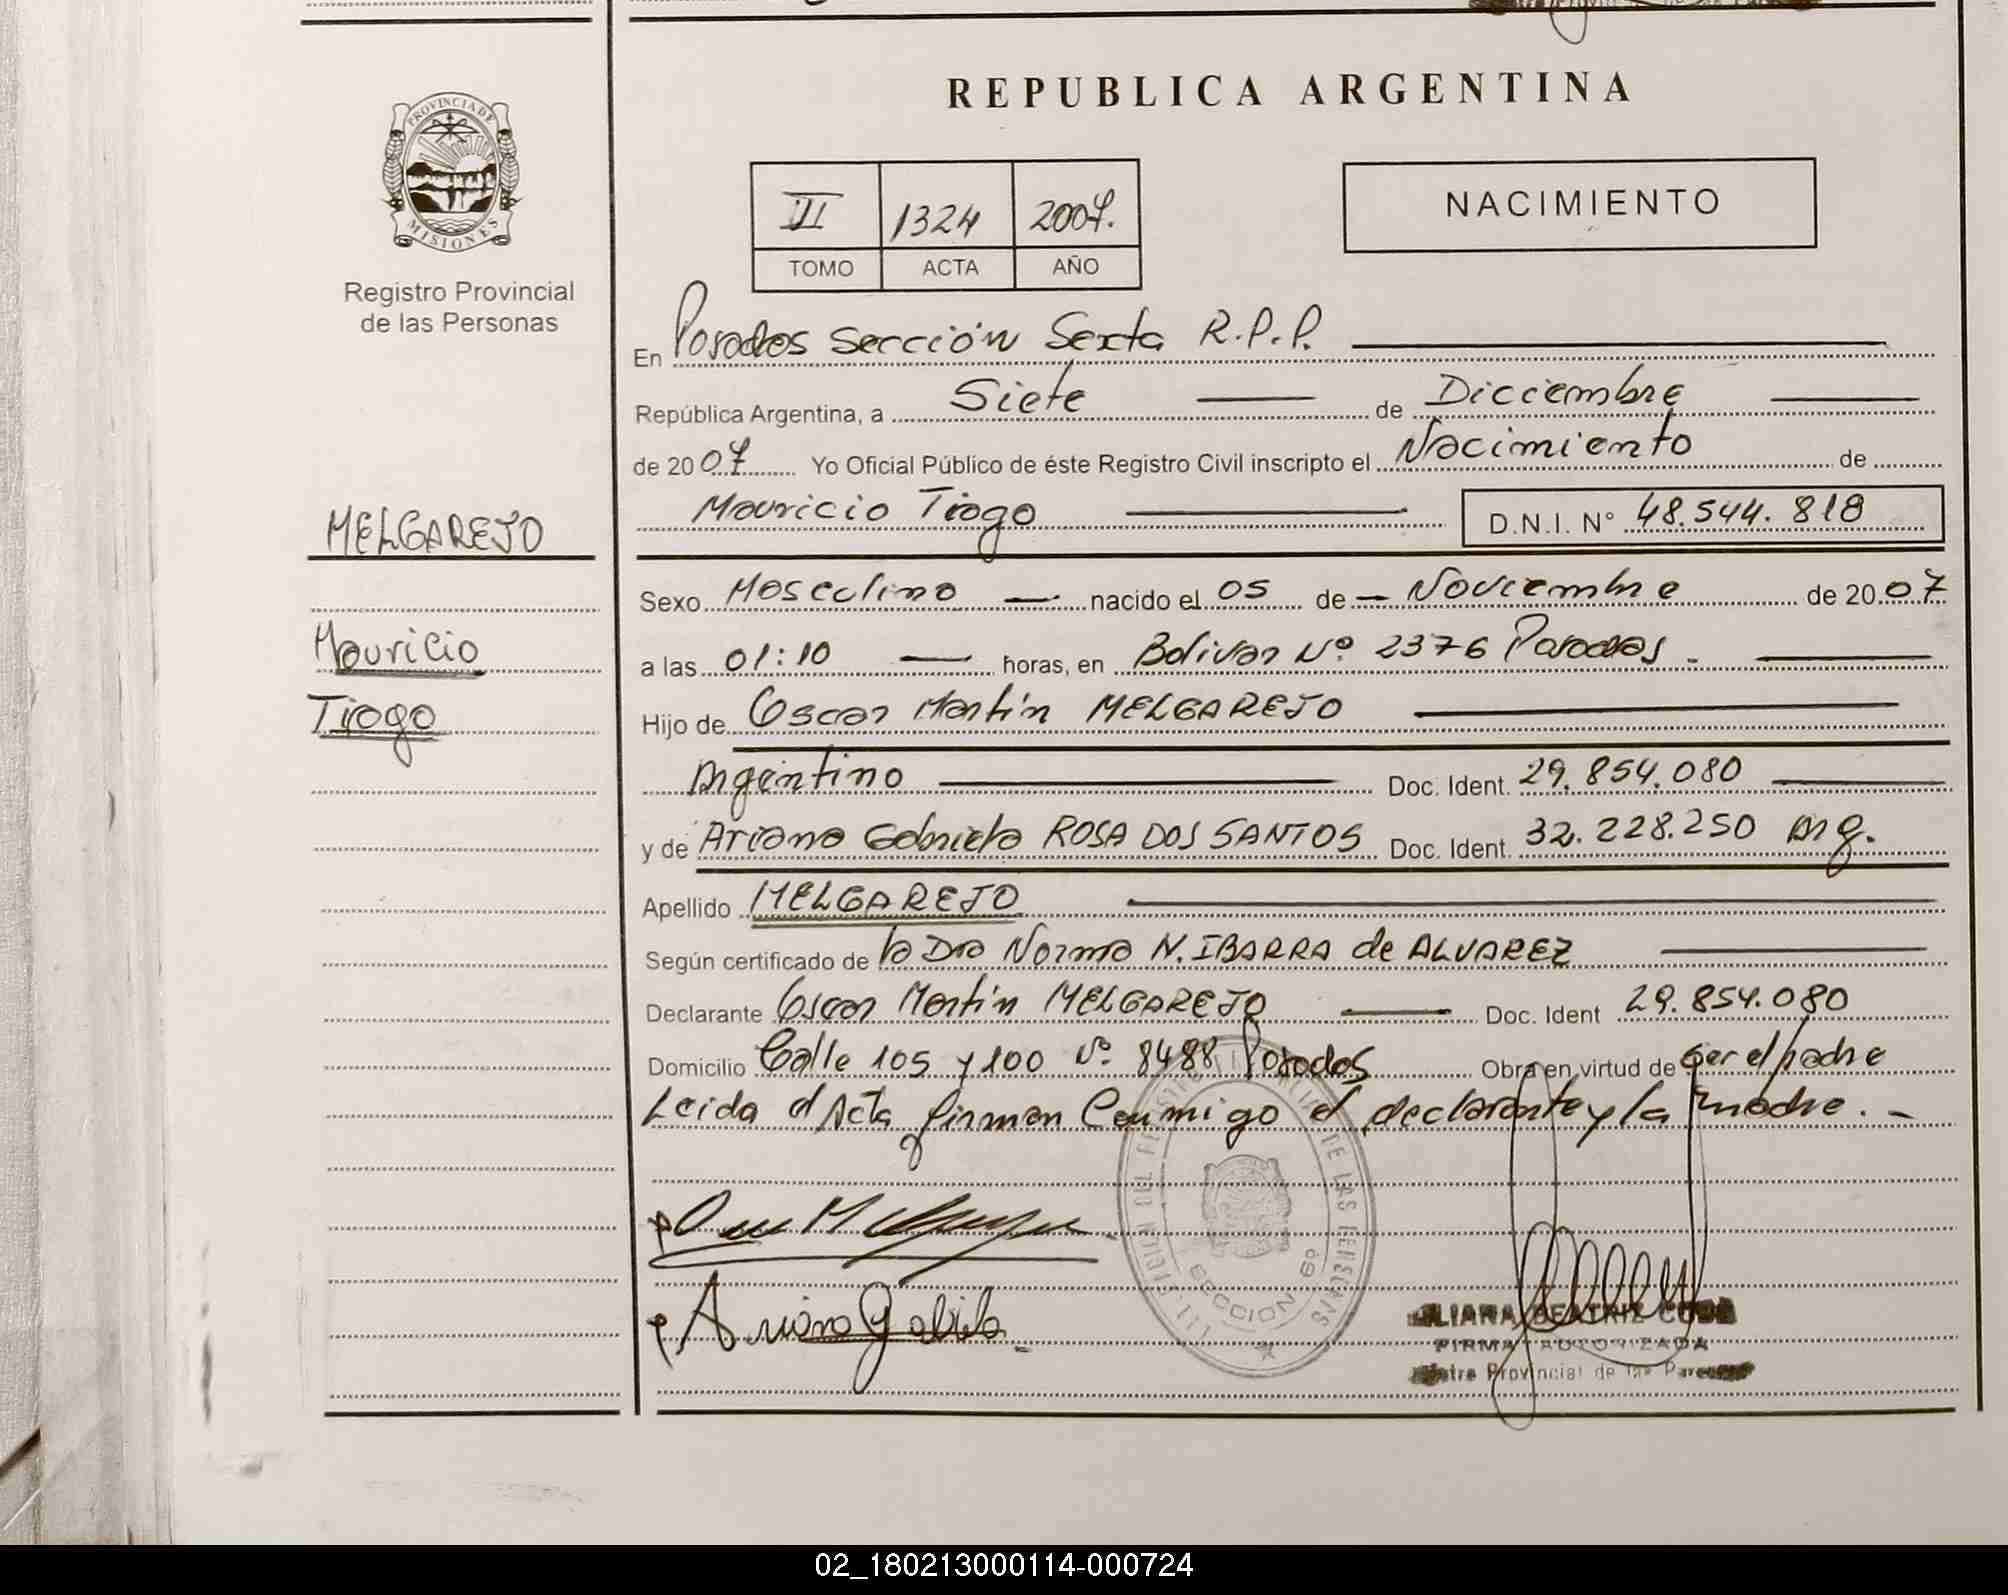 REPUBLICA ARGENTINA
PROVINCIA DE
MISIONES
Registro Provincial
de las Personas
III 1324 2007.
TOMO ACTA AÑO
NACIMIENTO
En Posadas Sección Sexta R.P.P.
República Argentina, a Siete de Diciembre
de 2007 Yo Oficial Público de éste Registro Civil inscripto el Nacimiento de
Mauricio Tiago D.N.I. N° 48.544.818
MELGAREJO
Mauricio
Tiago
Sexo Masculino nacido el 05 de Noviembre de 2007
a las 01:10 horas, en Bolivar Nº 2376 Posadas.
Hijo de Oscar Martín MELGAREJO
Argentino Doc. Ident. 29.854.080
y de Ariana Gabriela ROSA DOS SANTOS Doc. Ident. 32.228.250 Arg.
Apellido MELGAREJO
Según certificado de la Dra Norma N. IBARRA de ALVAREZ
Declarante Oscar Martín MELGAREJO Doc. Ident 29.854.080
Domicilio Calle 105 y 100 Nº 8488 Posadas Obra en virtud de Ser el padre
Leida el Acta firman Conmigo el declarante y la madre.-
Ariana Gabriela
SECCION 6º
DE LAS PERSONAS
BEATRIZ
FIRMA AUTORIZADA
Provincial de las
02_180213000114-000724